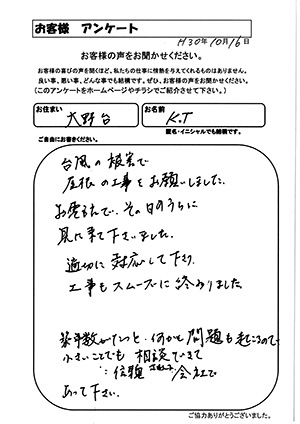 お客様 アンケート
H30年10月16日
お客様の声をお聞かせください。
お客様の喜びの声を聞くほど、私たちの仕事に情熱を与えてくれるものはありません。
良い事、悪い事、どんな事でも結構です。ぜひ、お客様の声をお聞かせください。
(このアンケートをホームページやチラシでご紹介させて下さい。)
お住まい
大野台
お名前
K.T
匿名・イニシャルでも結構です。
ご自由にお書きください。
台風の被害で
屋根の工事をお願いしました。
お電話で、その日のうちに
見に来て下さいました。
適切に対応して下さり、
工事もスムーズに終わりました
築年数がたつと、何かと問題も起こるので
小さいことでも相談できて
信頼される会社で
あって下さい。
ご協力ありがとうございました。